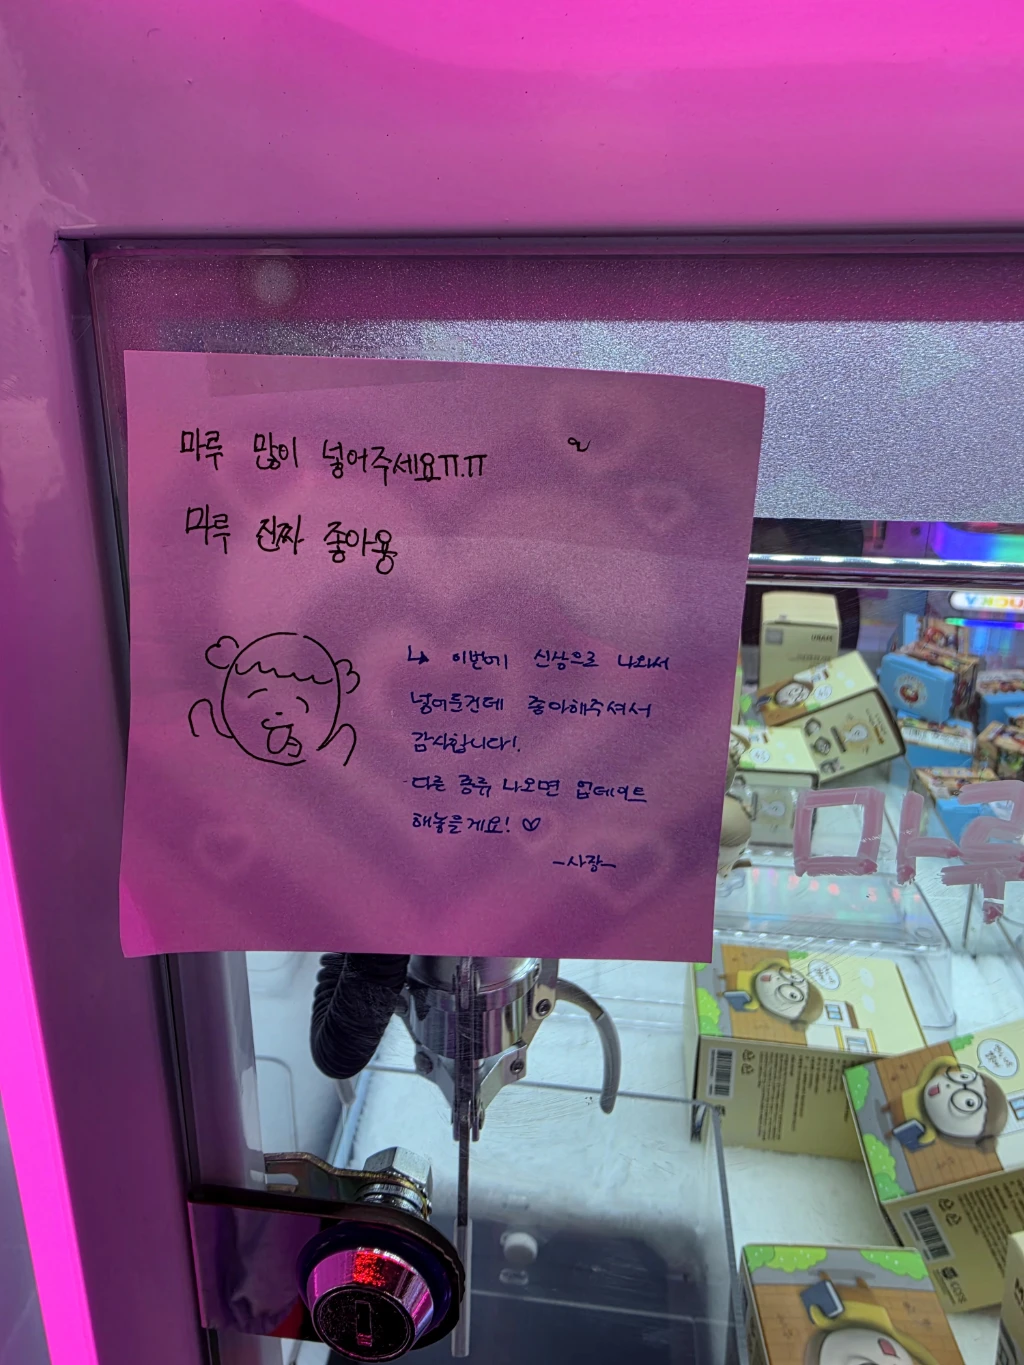 마루 많이 넣어주세요ㅠ.ㅠ
마루 진짜 좋아용
↳ 이번에 신상으로 나와서
넣어둔건데 좋아해주셔서
감사합니다!
다른 종류 나오면 업데이트
해놓을게요! ♡
-사장-
마루